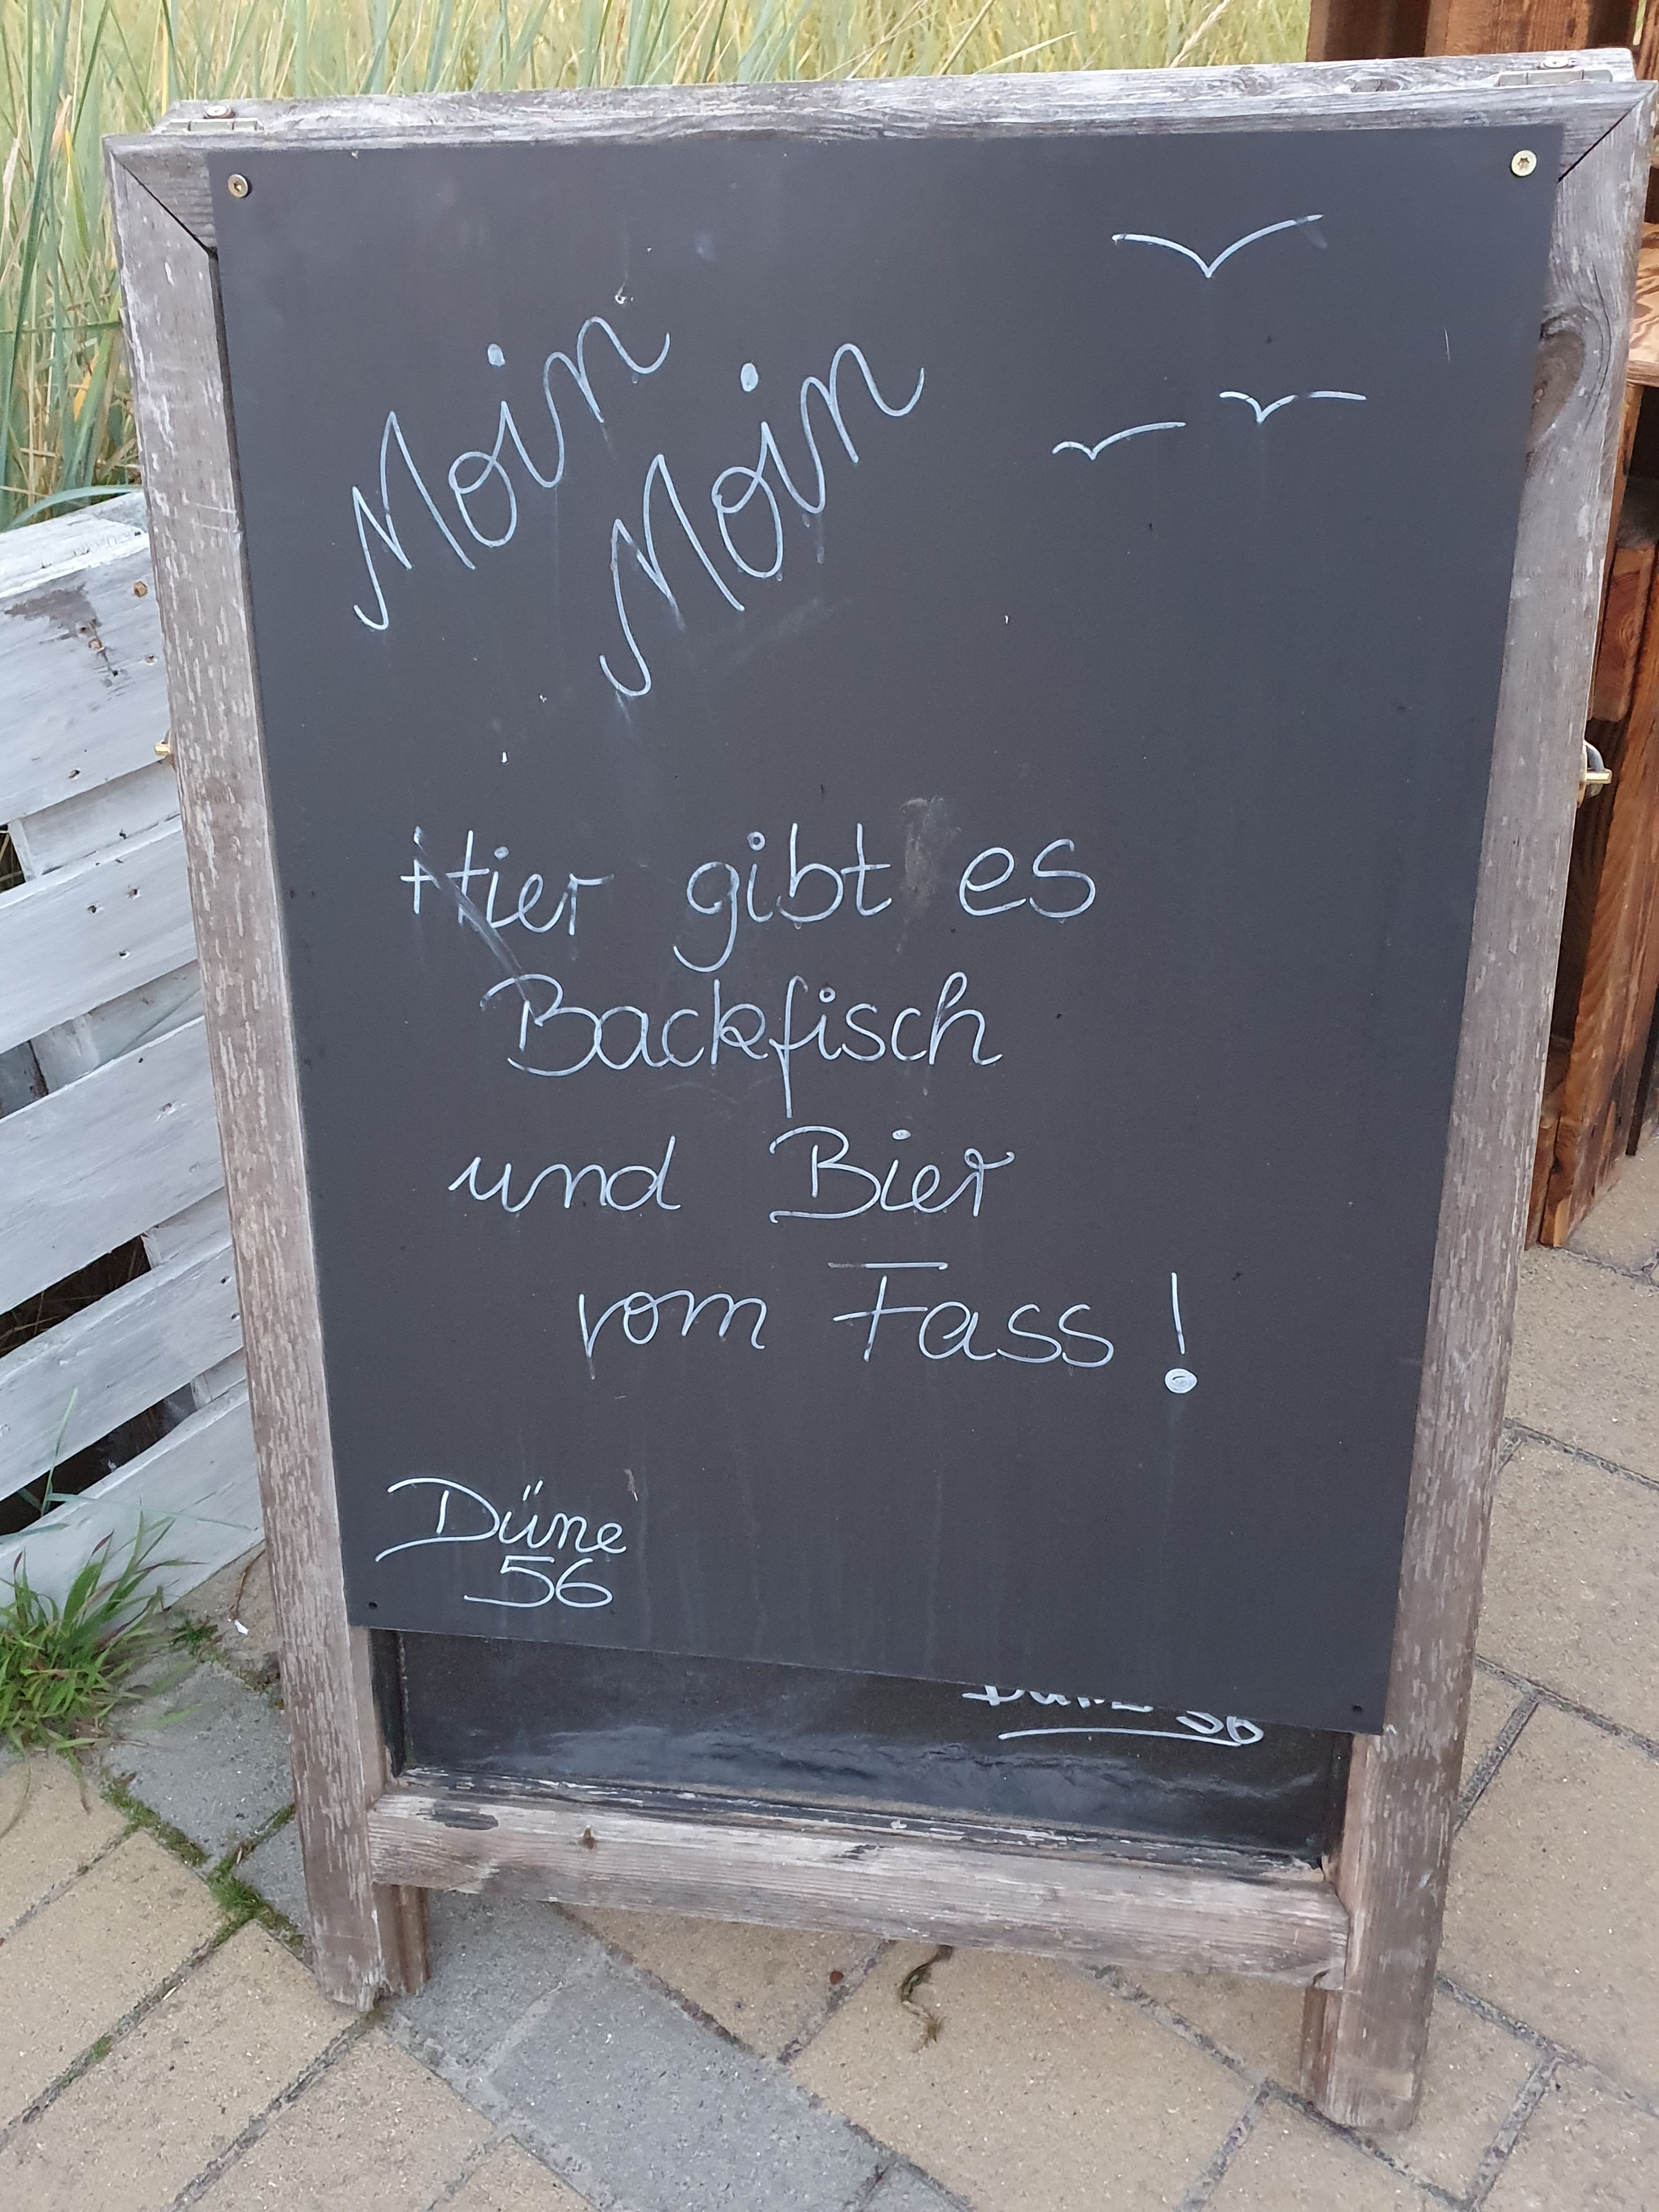 Moin
Moin
Hier gibt es
Backfisch
und Bier
vom Fass!
Düne
56
Düne 56